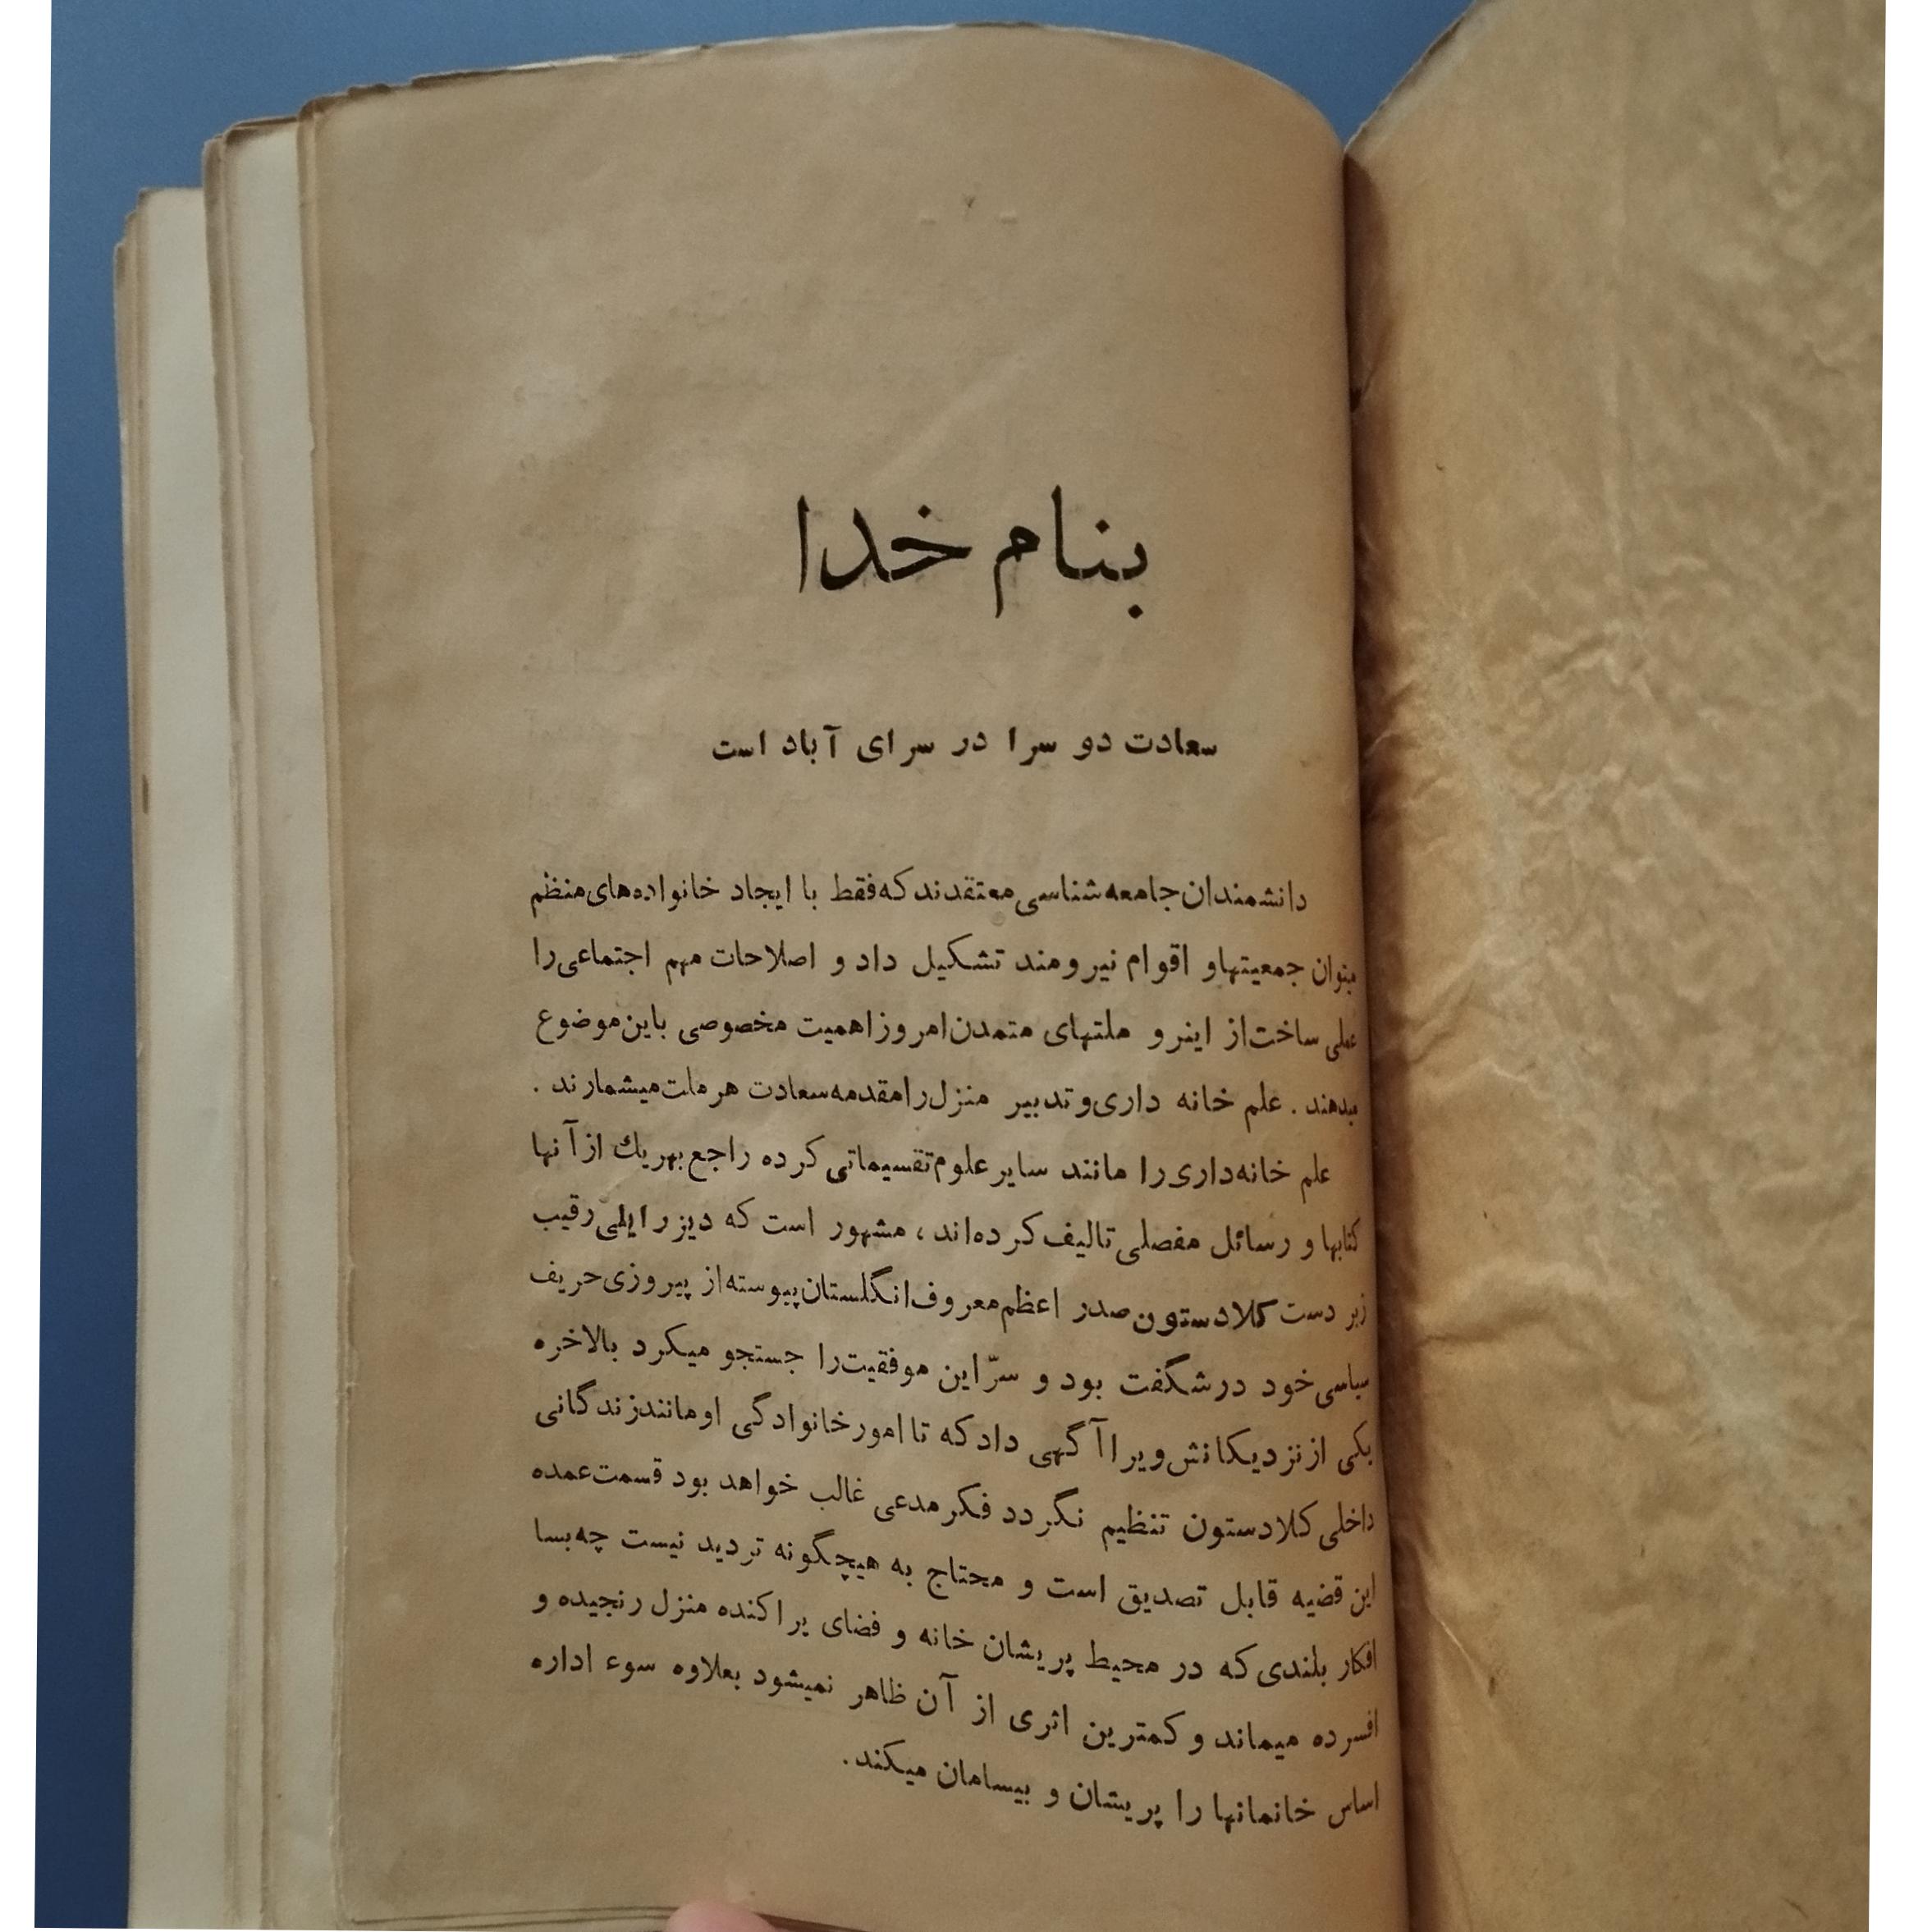 - ۲ -
بنام خدا
سعادت دو سرا در سرای آباد است
دانشمندان جامعه شناسی معتقدند که فقط با ایجاد خانواده های منظم
میتوان جمعیتها و اقوام نیرومند تشکیل داد و اصلاحات مهم اجتماعی را
عملی ساخت از اینرو ملتهای متمدن امروز اهمیت مخصوصی باین موضوع
میدهند . علم خانه داری و تدبیر منزل را مقدمه سعادت هر ملت میشمارند .
علم خانه داری را مانند سایر علوم تقسیماتی کرده راجع بهریك از آنها
کتابها و رسائل مفصلی تالیف کرده اند ، مشهور است که دیزرایلی رقیب
زبر دست کلادستون صدر اعظم معروف انگلستان پیوسته از پیروزی حریف
سیاسی خود در شگفت بود و سرّ این موفقیت را جستجو میکرد بالاخره
یکی از نزدیکانش ویرا آگهی داد که تا امور خانوادگی او مانند زندگانی
داخلی کلادستون تنظیم نگردد فکر مدعی غالب خواهد بود قسمت عمده
این قضیه قابل تصدیق است و محتاج به هیچگونه تردید نیست چه بسا
افکار بلندی که در محیط پریشان خانه و فضای پراکنده منزل رنجیده و
افسرده میماند و کمترین اثری از آن ظاهر نمیشود بعلاوه سوء اداره
اساس خانمانها را پریشان و بیسامان میکند.